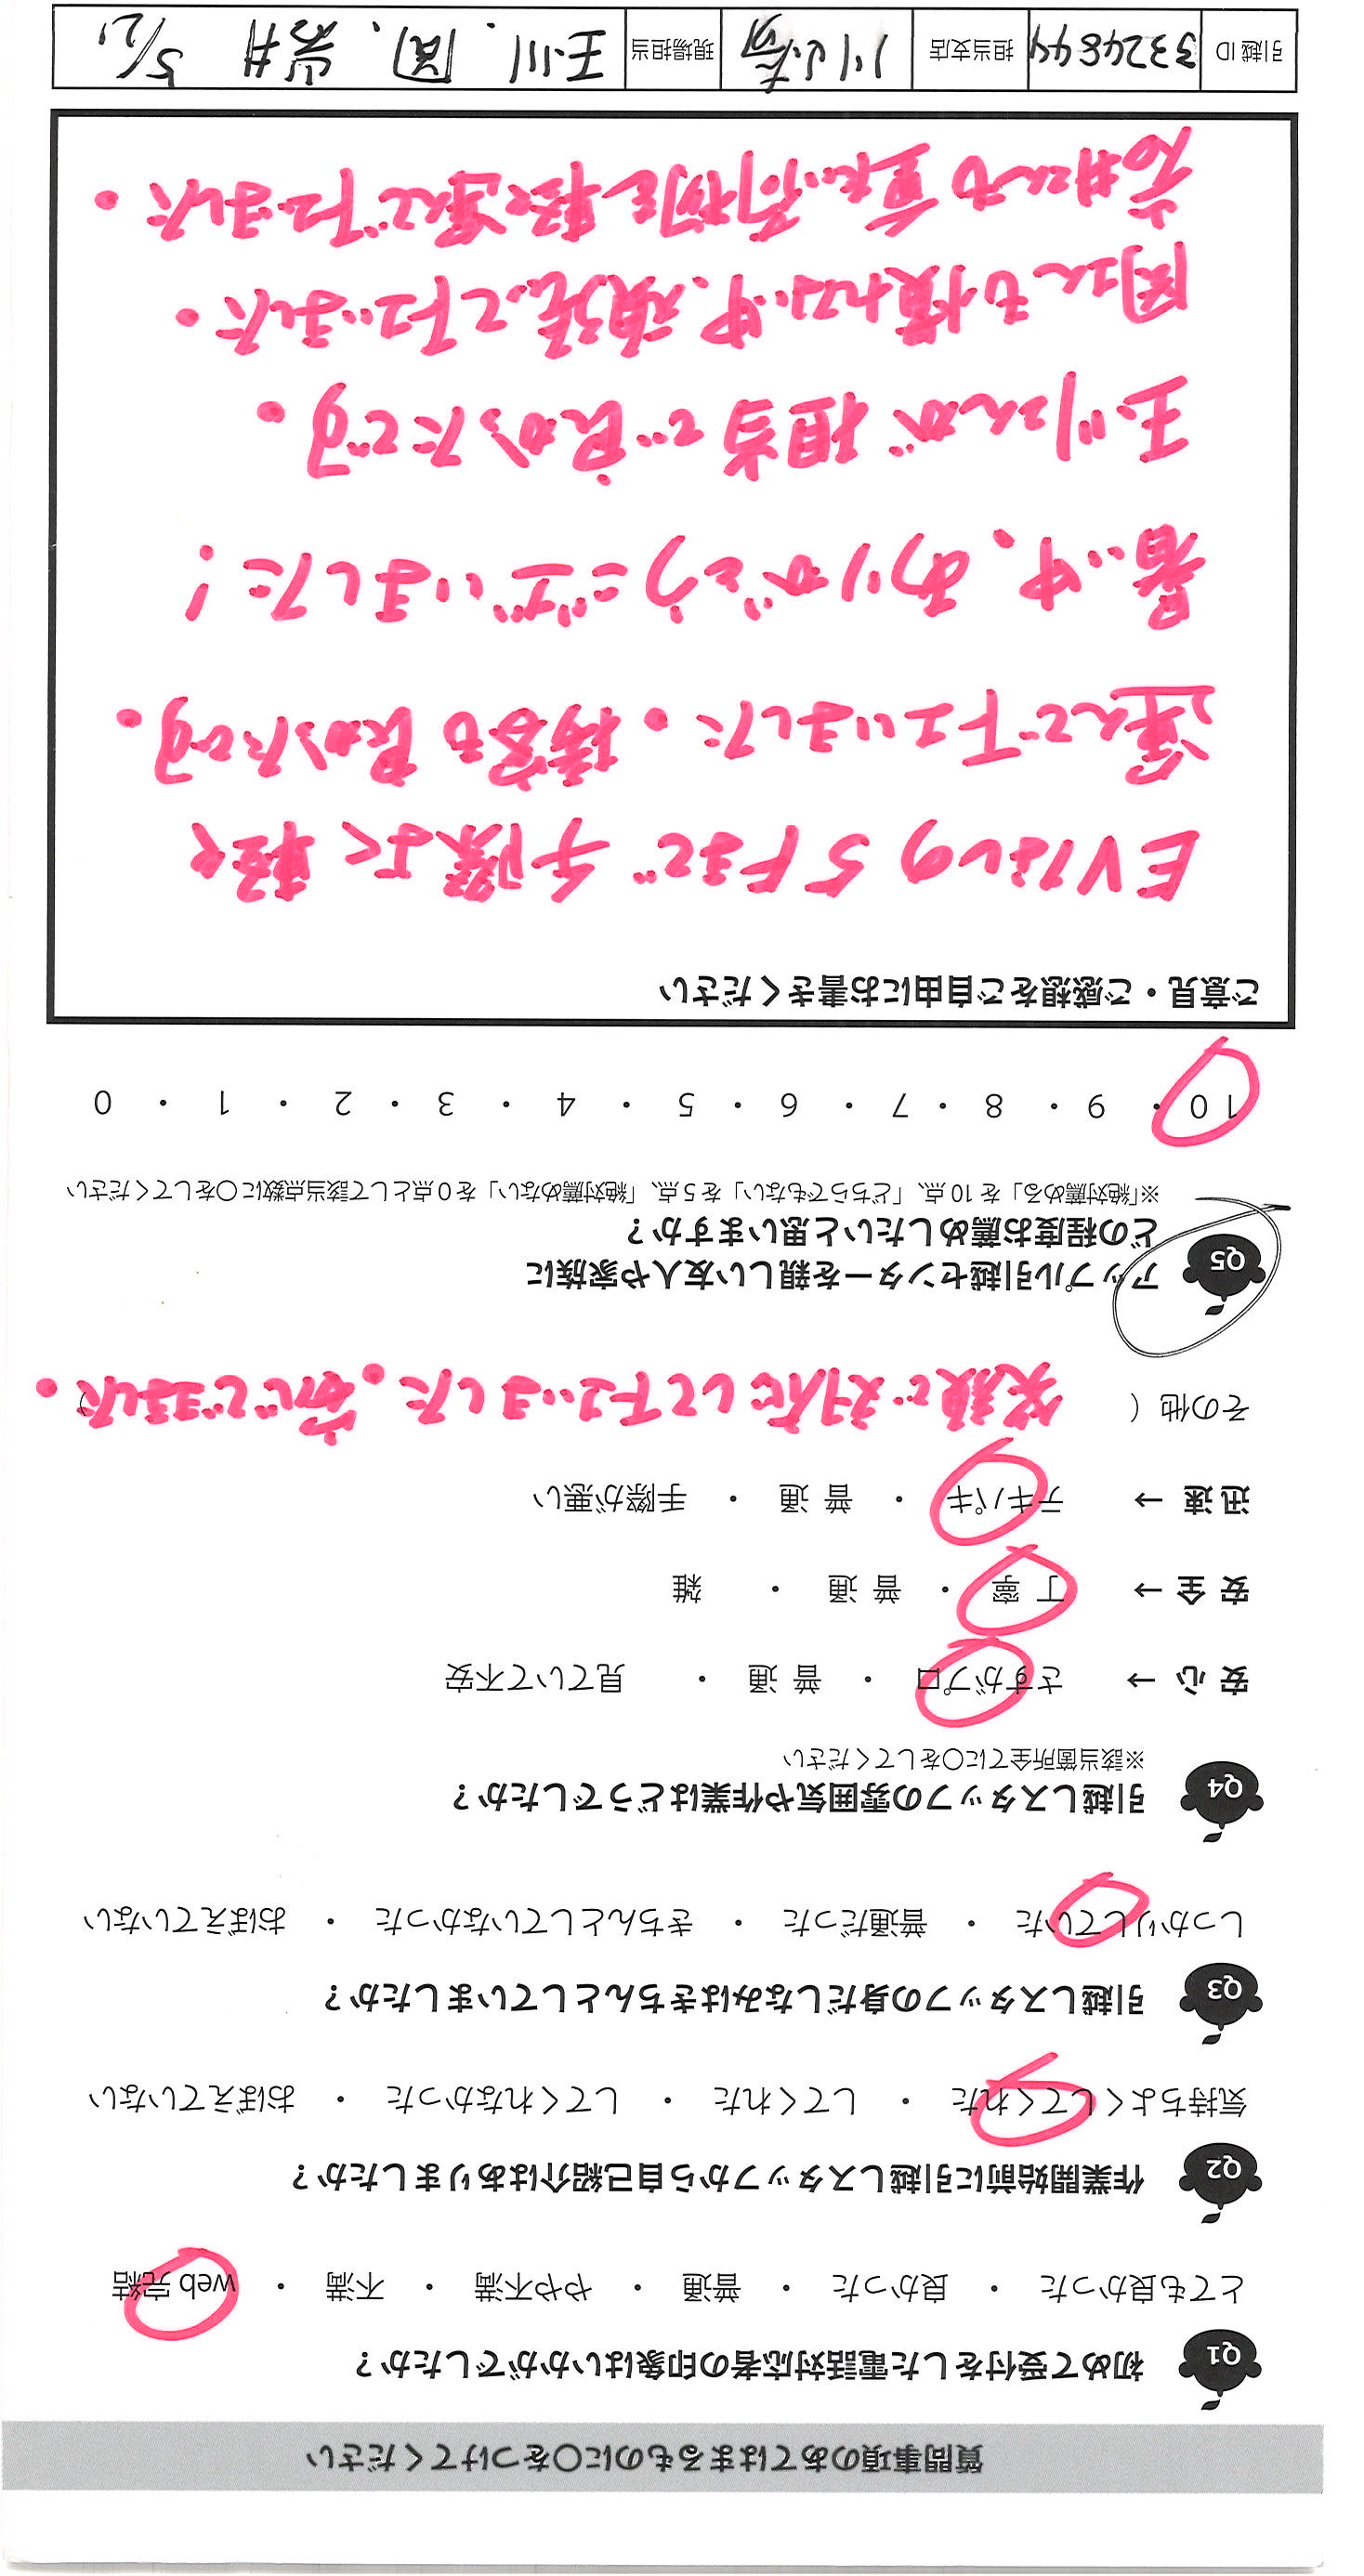 質問事項のあてはまるものに〇をつけてください
Q1 初めて受付をした電話対応者の印象はいかがでしたか？
とても良かった ・ 良かった ・ 普通 ・ やや不満 ・ 不満 ・ web 完結
Q2 作業開始前に引越しスタッフから自己紹介はありましたか？
気持ちよくしてくれた ・ してくれた ・ してくれなかった ・ おぼえていない
Q3 引越しスタッフの身だしなみはきちんとしていましたか？
しっかりしていた ・ 普通だった ・ きちんとしていなかった ・ おぼえていない
Q4 引越しスタッフの雰囲気や作業はどうでしたか？
※該当箇所全てに〇をしてください
安 心 → さすがプロ ・ 普 通 ・ 見ていて不安
安 全 → 丁 寧 ・ 普 通 ・ 雑
迅 速 → テキパキ ・ 普 通 ・ 手際が悪い
その他（ 笑顔で対応して下さいました。安心できました。）
Q5 アップル引越センターを親しい友人や家族に
どの程度お薦めしたいと思いますか？
※「絶対薦める」を 10 点、「どちらでもない」を 5 点、「絶対薦めない」を 0 点として該当点数に〇をしてください
10 ・ 9 ・ 8 ・ 7 ・ 6 ・ 5 ・ 4 ・ 3 ・ 2 ・ 1 ・ 0
ご意見・ご感想をご自由にお書きください
EVなしの 5Fまで 手際よく 軽く
運んで下さいました。接客も良かったです。
暑い中、ありがとうございました！
玉川さんが 担当で良かったです。
関さんも慣れない中、頑張って下さいました。
岩井さんも 重たい荷物を軽く運んで下さいました。
引越 ID 3324844 担当支店 川崎 現場担当 玉川、関、岩井 5/21